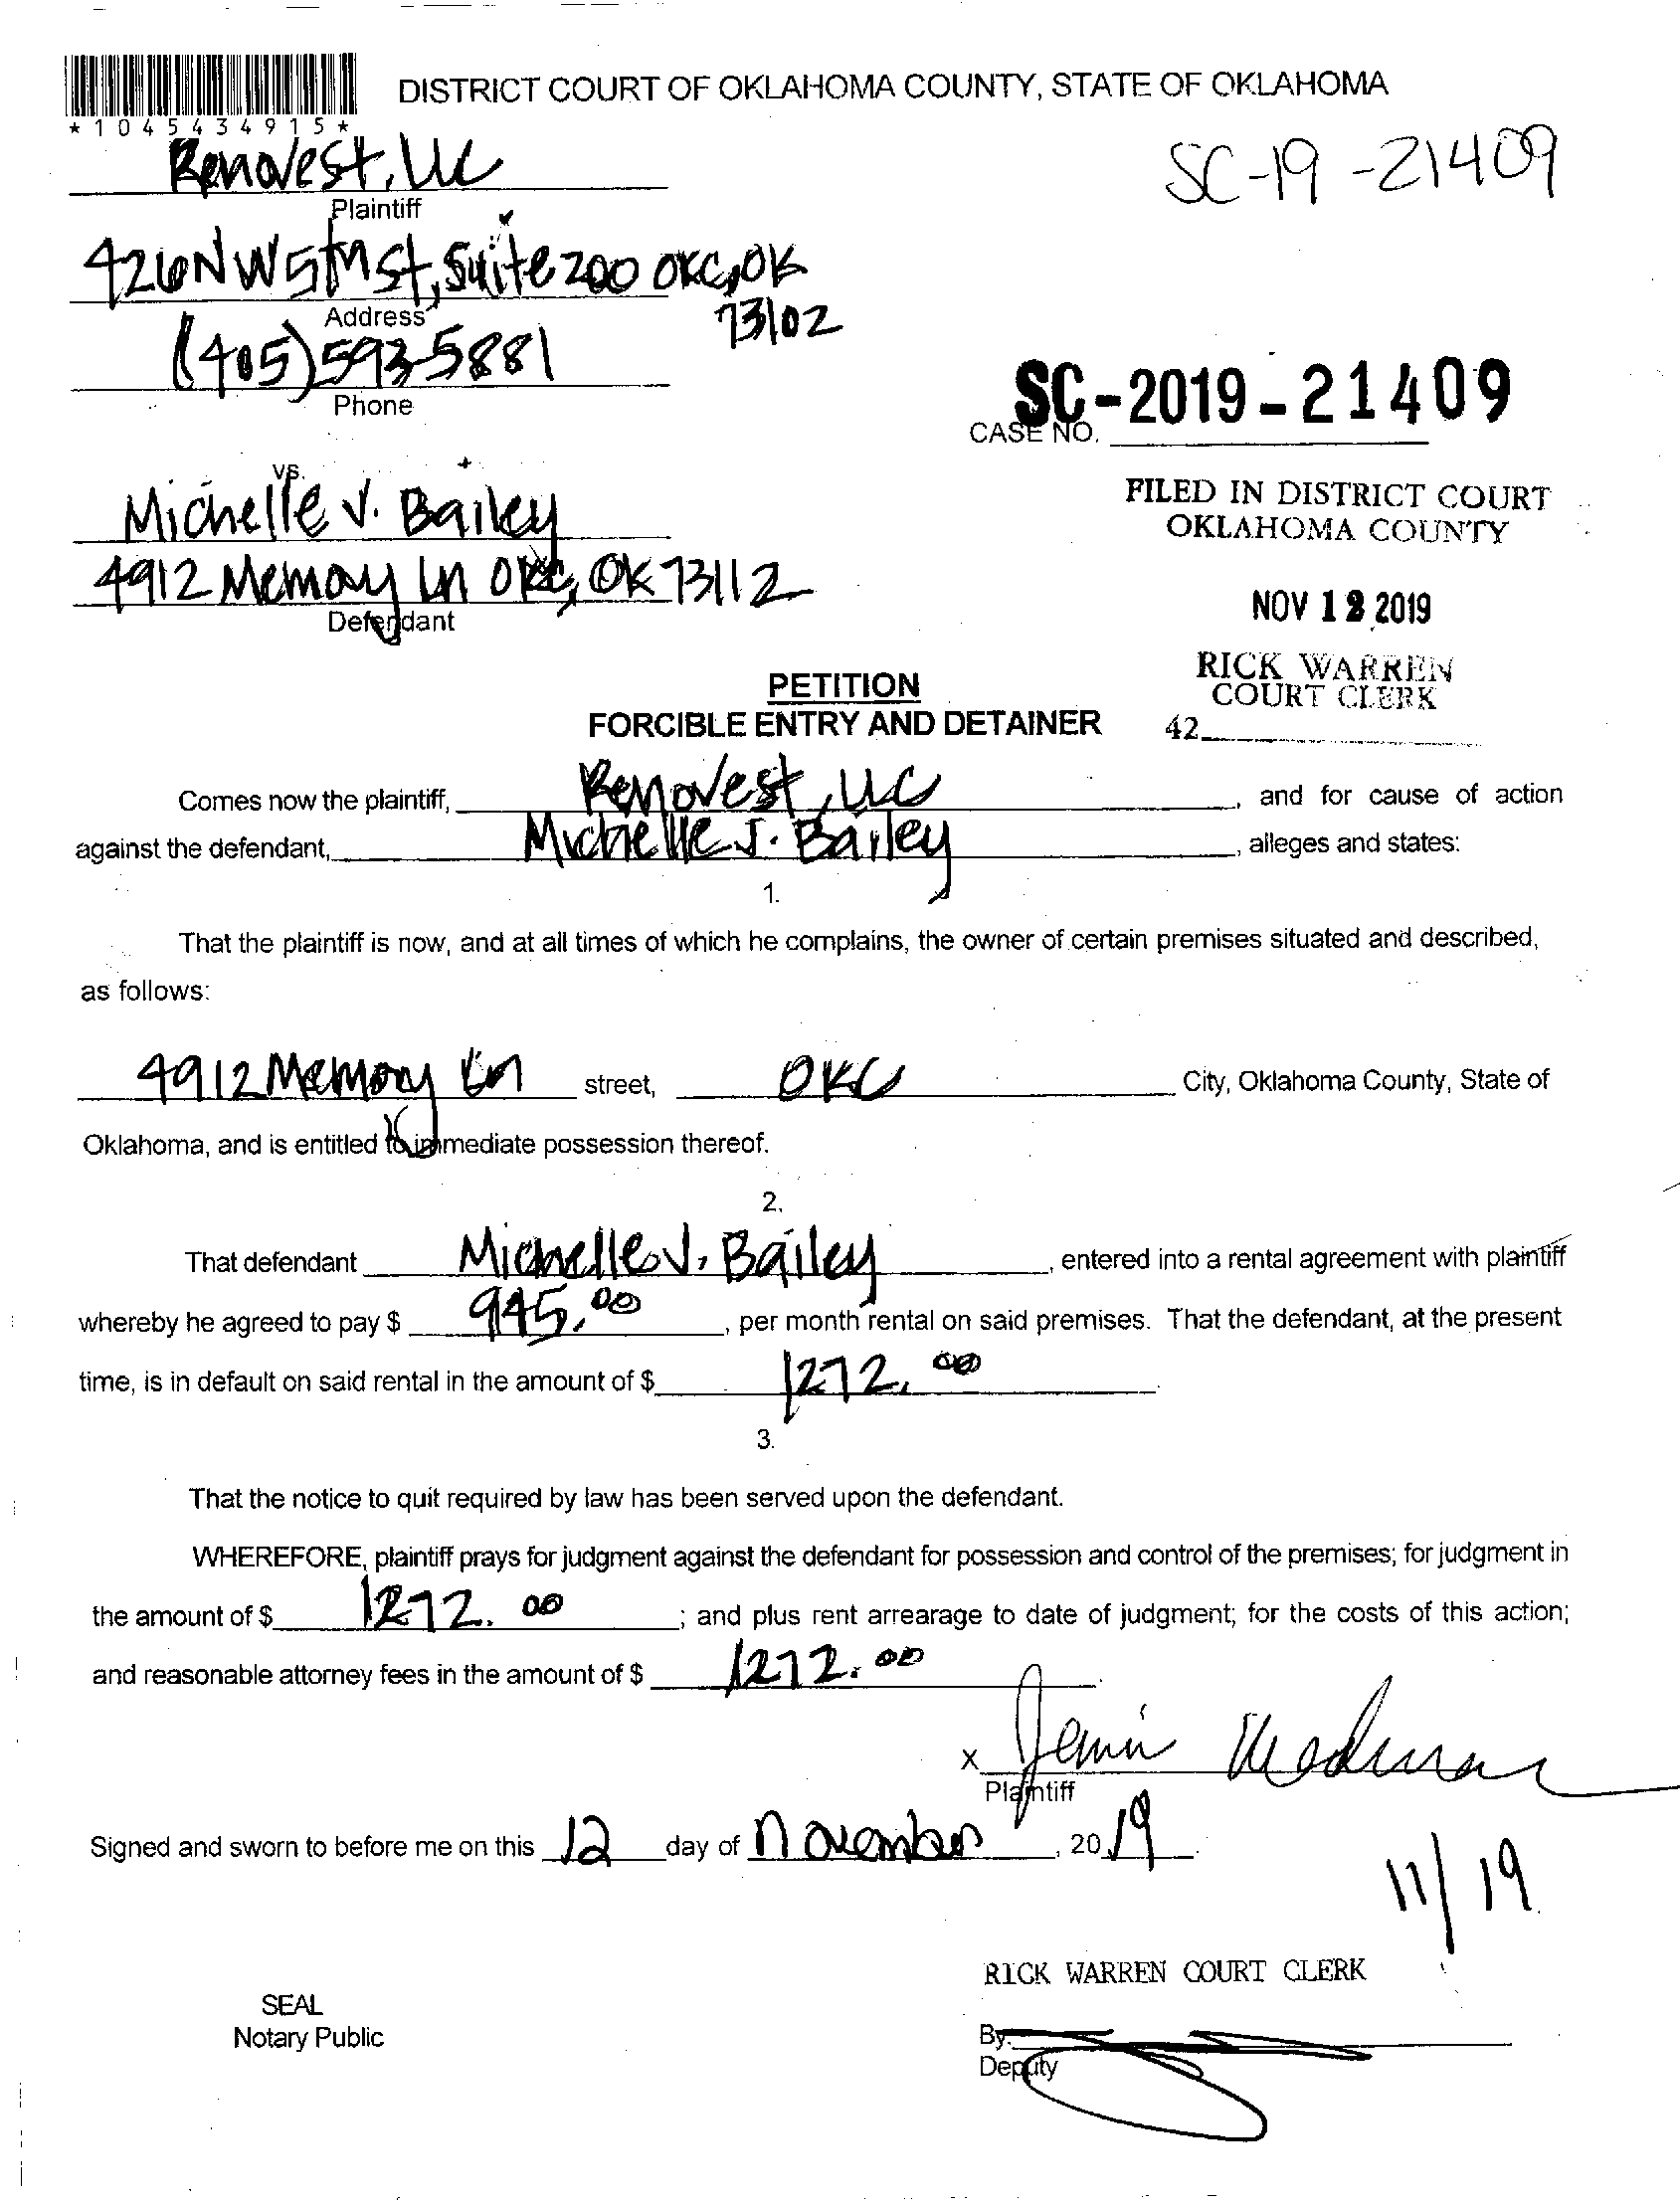 DISTRICT COURT OF OKLAHOMA COUNTY, STATE OF OKLAHOMA
*1045434915*
Renovest, LLC
SC-19-21409
Plaintiff
426 NW 5th St, Suite 200 OKC, OK
73102
Address
(405) 593-5881
Phone
SC-2019-21409
CASE NO.
vs.
Michelle J. Bailey
FILED IN DISTRICT COURT
OKLAHOMA COUNTY
4912 Memory Ln OKC, OK 73112
Defendant
NOV 12 2019
RICK WARREN
COURT CLERK
42
PETITION
FORCIBLE ENTRY AND DETAINER
Comes now the plaintiff, Renovest, LLC, and for cause of action
against the defendant, Michelle J. Bailey, alleges and states:
1.
That the plaintiff is now, and at all times of which he complains, the owner of certain premises situated and described,
as follows:
4912 Memory Ln street, OKC City, Oklahoma County, State of
Oklahoma, and is entitled to immediate possession thereof.
2.
That defendant Michelle J. Bailey, entered into a rental agreement with plaintiff
whereby he agreed to pay $ 945.00, per month rental on said premises. That the defendant, at the present
time, is in default on said rental in the amount of $ 1272.00.
3.
That the notice to quit required by law has been served upon the defendant.
WHEREFORE, plaintiff prays for judgment against the defendant for possession and control of the premises; for judgment in
the amount of $ 1272.00; and plus rent arrearage to date of judgment; for the costs of this action;
and reasonable attorney fees in the amount of $ 1272.00.
X
Plaintiff
Signed and sworn to before me on this 12 day of November, 2019.
11/19
RICK WARREN COURT CLERK
SEAL
Notary Public
By:
Deputy